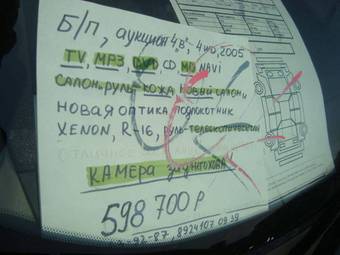 Б/П, аукцион 4,В", 4wd, 2005
TV, MP3, DVD, CD MD NAVI
САЛОН, руль КОЖА НОВЫЙ САЛОН,
НОВАЯ ОПТИКА ПОДЛОКОТНИК
XENON, R-16, руль ТЕЛЕСКОПИЧЕСКИЙ
КАМЕРА ЗАДНЕГО ХОДА
598 700 Р
-92-87, 8924107 09 39